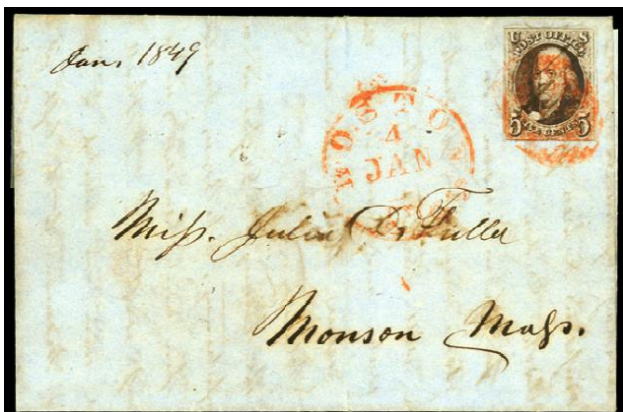 Jan, 1849
U S
POST OFFICE
5 FIVE CENTS 5
BOSTON
4
JAN
Miss. Julia D. Fuller
Monson Mass.